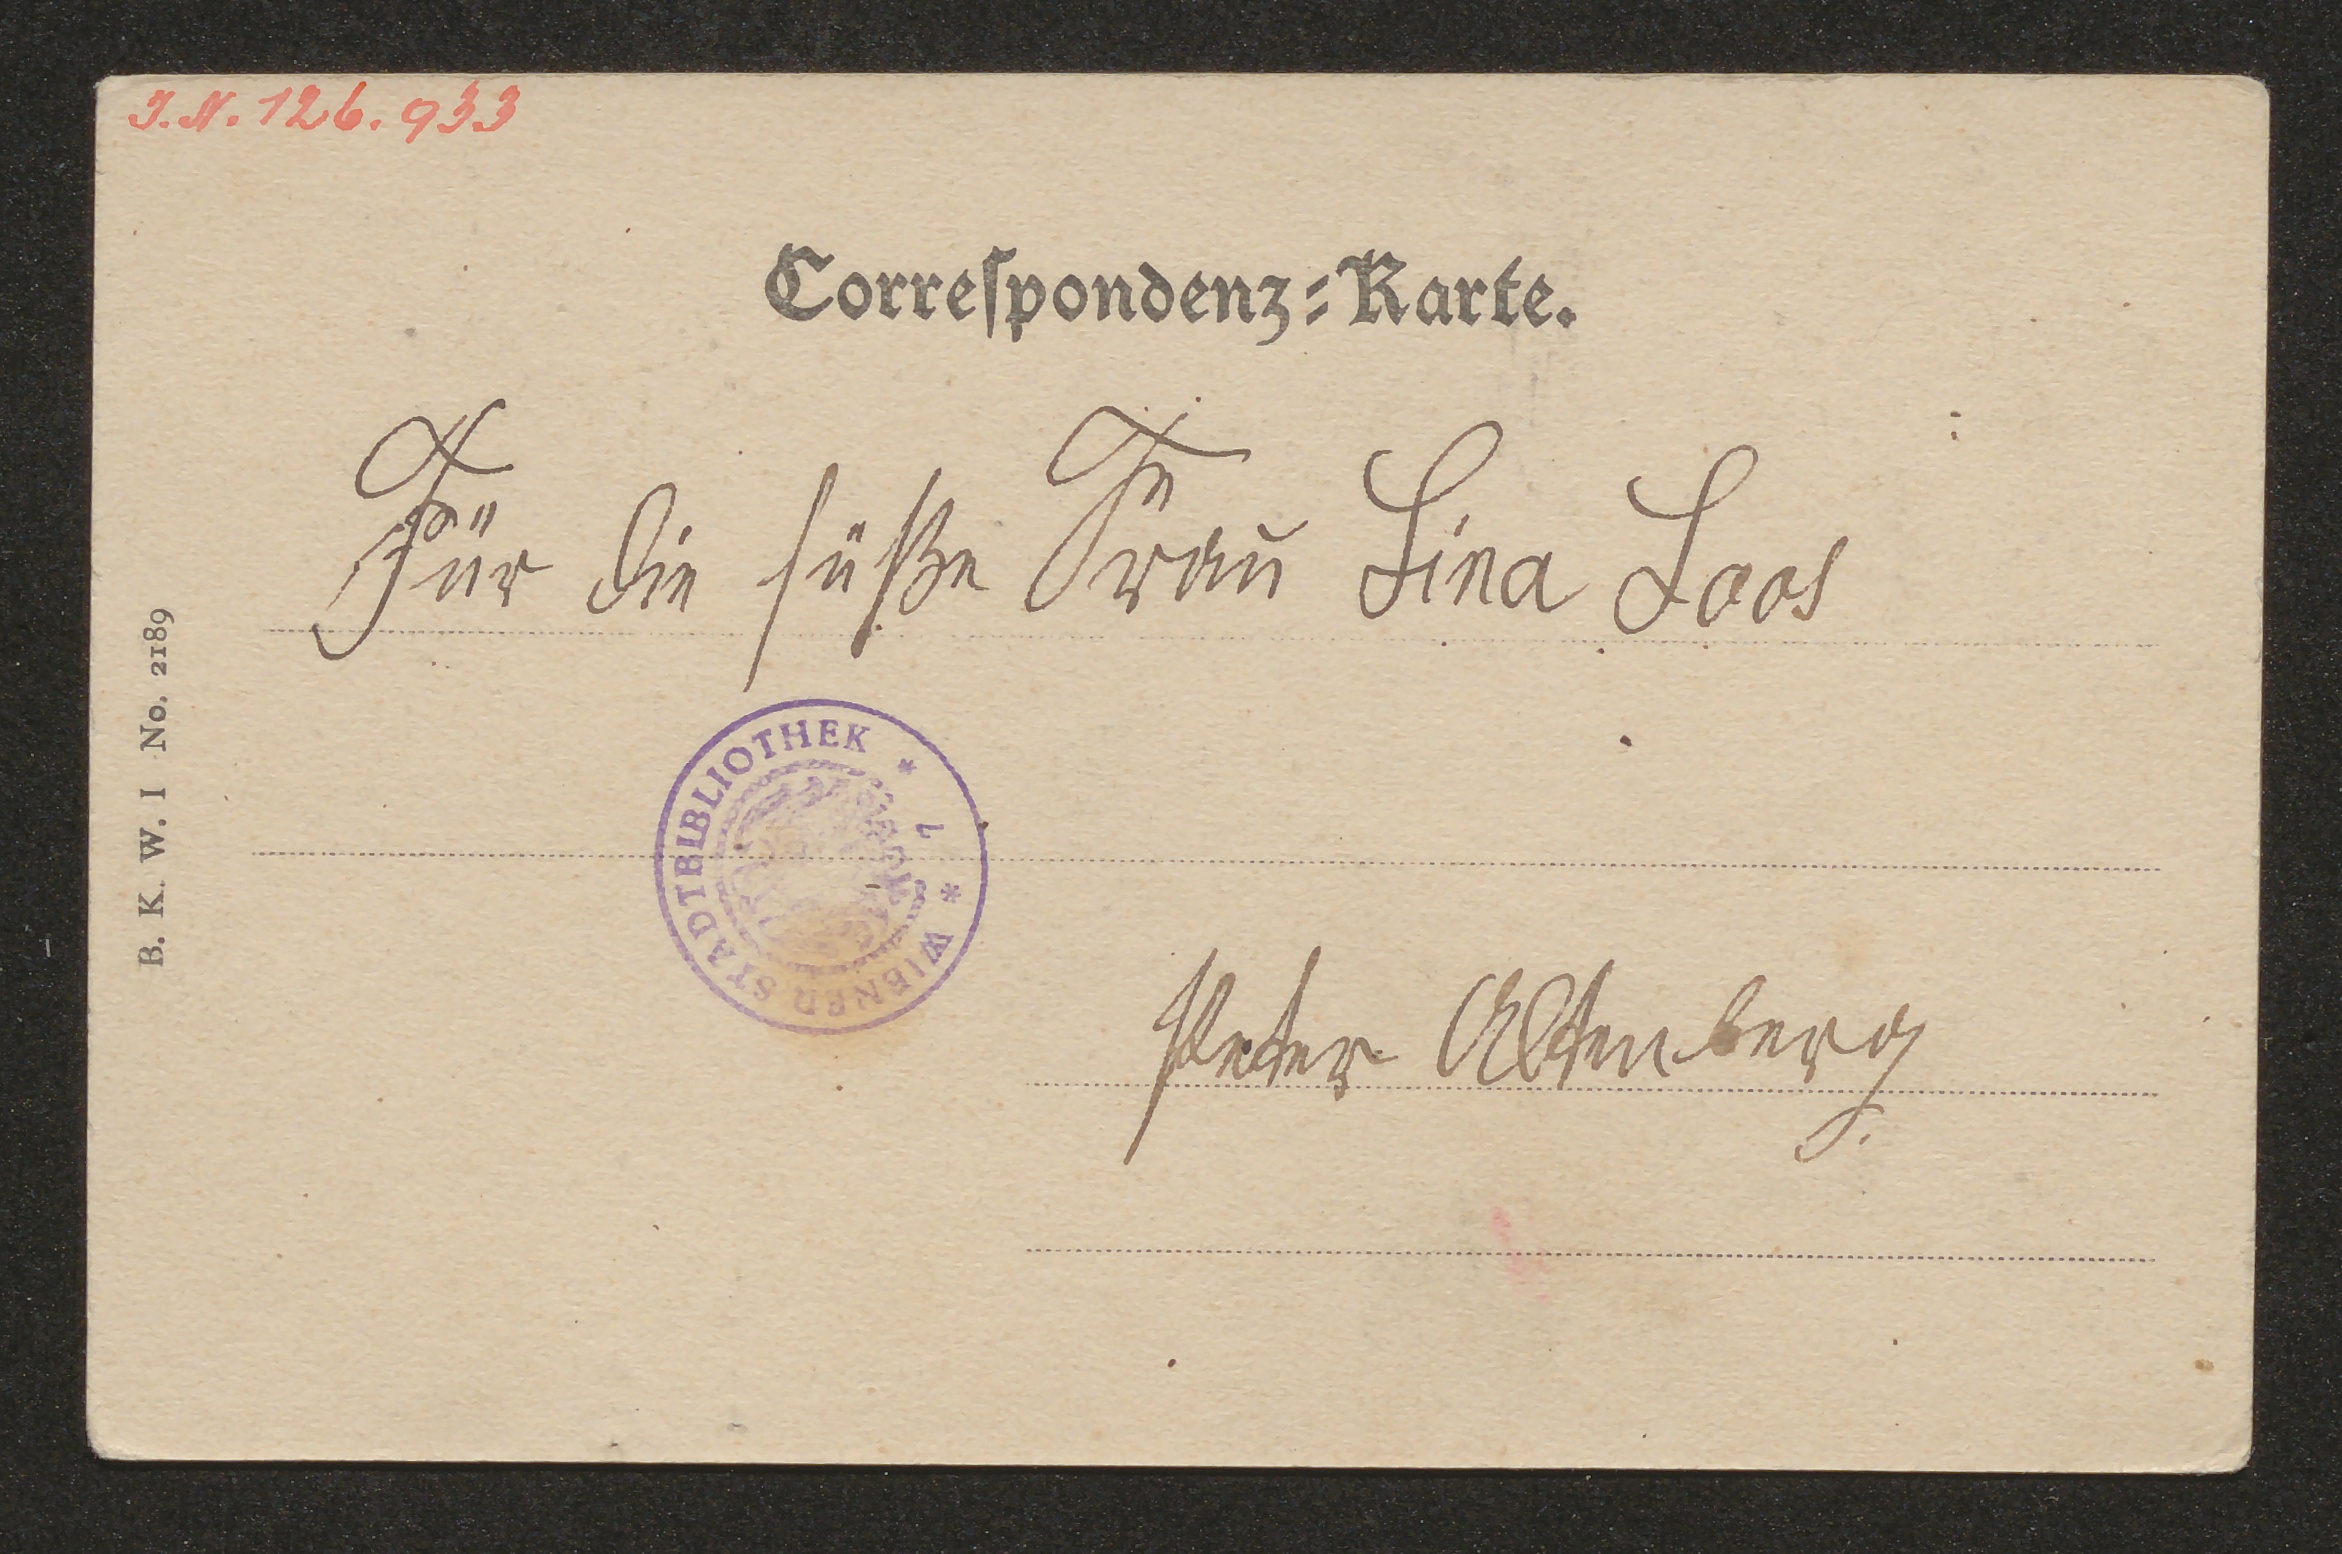 J.N. 126.933
Correſpondenz-Karte.
Für die süße Frau Lina Loos
B. K. W. I No. 2189
WIENER STADTBIBLIOTHEK * 1 *
Peter Altenberg